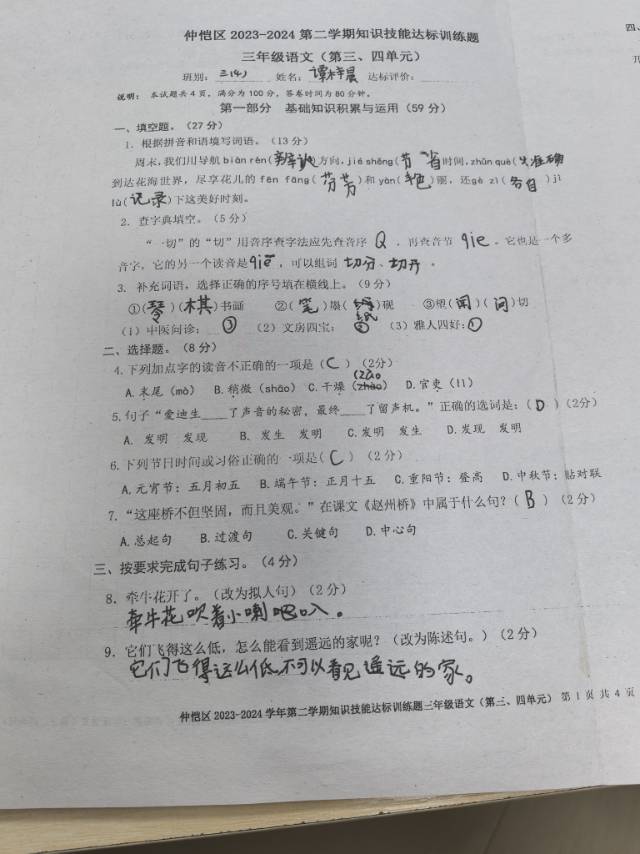 仲恺区 2023-2024 第二学期知识技能达标训练题
三年级语文（第三、四单元）
班别：三(4) 姓名：谭梓晨 达标评价：
说明： 本试题共 4 页，满分为 100 分，答卷时间为 80 分钟。
第一部分 基础知识积累与运用（59 分）
一、填空题。（27 分）
1. 根据拼音和语境写词语。（13 分）
周末，我们用导航 biàn rèn（辨认）方向，jié shěng（节省）时间，zhǔn què（准确）
到达花海世界，尽享花儿的 fēn fāng（芬芳）和 yàn（艳）丽，还gè zì（各自）jì
lù（记录）下这美好时刻。
2. 查字典填空。（5 分）
“一切”的“切”用音序查字法应先查音序 Q ，再查音节 qie 。它也是一个多
音字，它的另一个读音是 qiē ，可以组词 切分、切开 。
3. 补充词语，选择正确的序号填在横线上。（9 分）
①（琴）（棋）书画 ②（笔）墨（纸）砚 ③望（闻）（问）切
（1）中医问诊： ③ （2）文房四宝： ② （3）雅人四好：①
二、选择题。（8 分）
4. 下列加点字的读音不正确的一项是（C）（2分）
A. 末尾（mò） B. 稍微（shāo） C. 干燥（zhào） D. 官吏（lì）
5. 句子“爱迪生____了声音的秘密，最终____了留声机。”正确的选词是：（D）（2分）
A. 发明 发现 B. 发生 发明 C. 发明 发生 D. 发现 发明
6. 下列节日时间或习俗正确的一项是（C）（2 分）
A. 元宵节：五月初五 B. 端午节：正月十五 C. 重阳节：登高 D. 中秋节：贴对联
7. “这座桥不但坚固，而且美观。”在课文《赵州桥》中属于什么句？（B）（2 分）
A. 总起句 B. 过渡句 C. 关键句 D. 中心句
三、按要求完成句子练习。（4 分）
8. 牵牛花开了。（改为拟人句）（2 分）
牵牛花吹着小喇吧。
9. 它们飞得这么低，怎么能看到遥远的家呢？（改为陈述句。）（2 分）
它们飞得这么低不可以看见遥远的家。
仲恺区 2023-2024 学年第二学期知识技能达标训练题三年级语文（第三、四单元） 第 1 页 共 4 页
四、